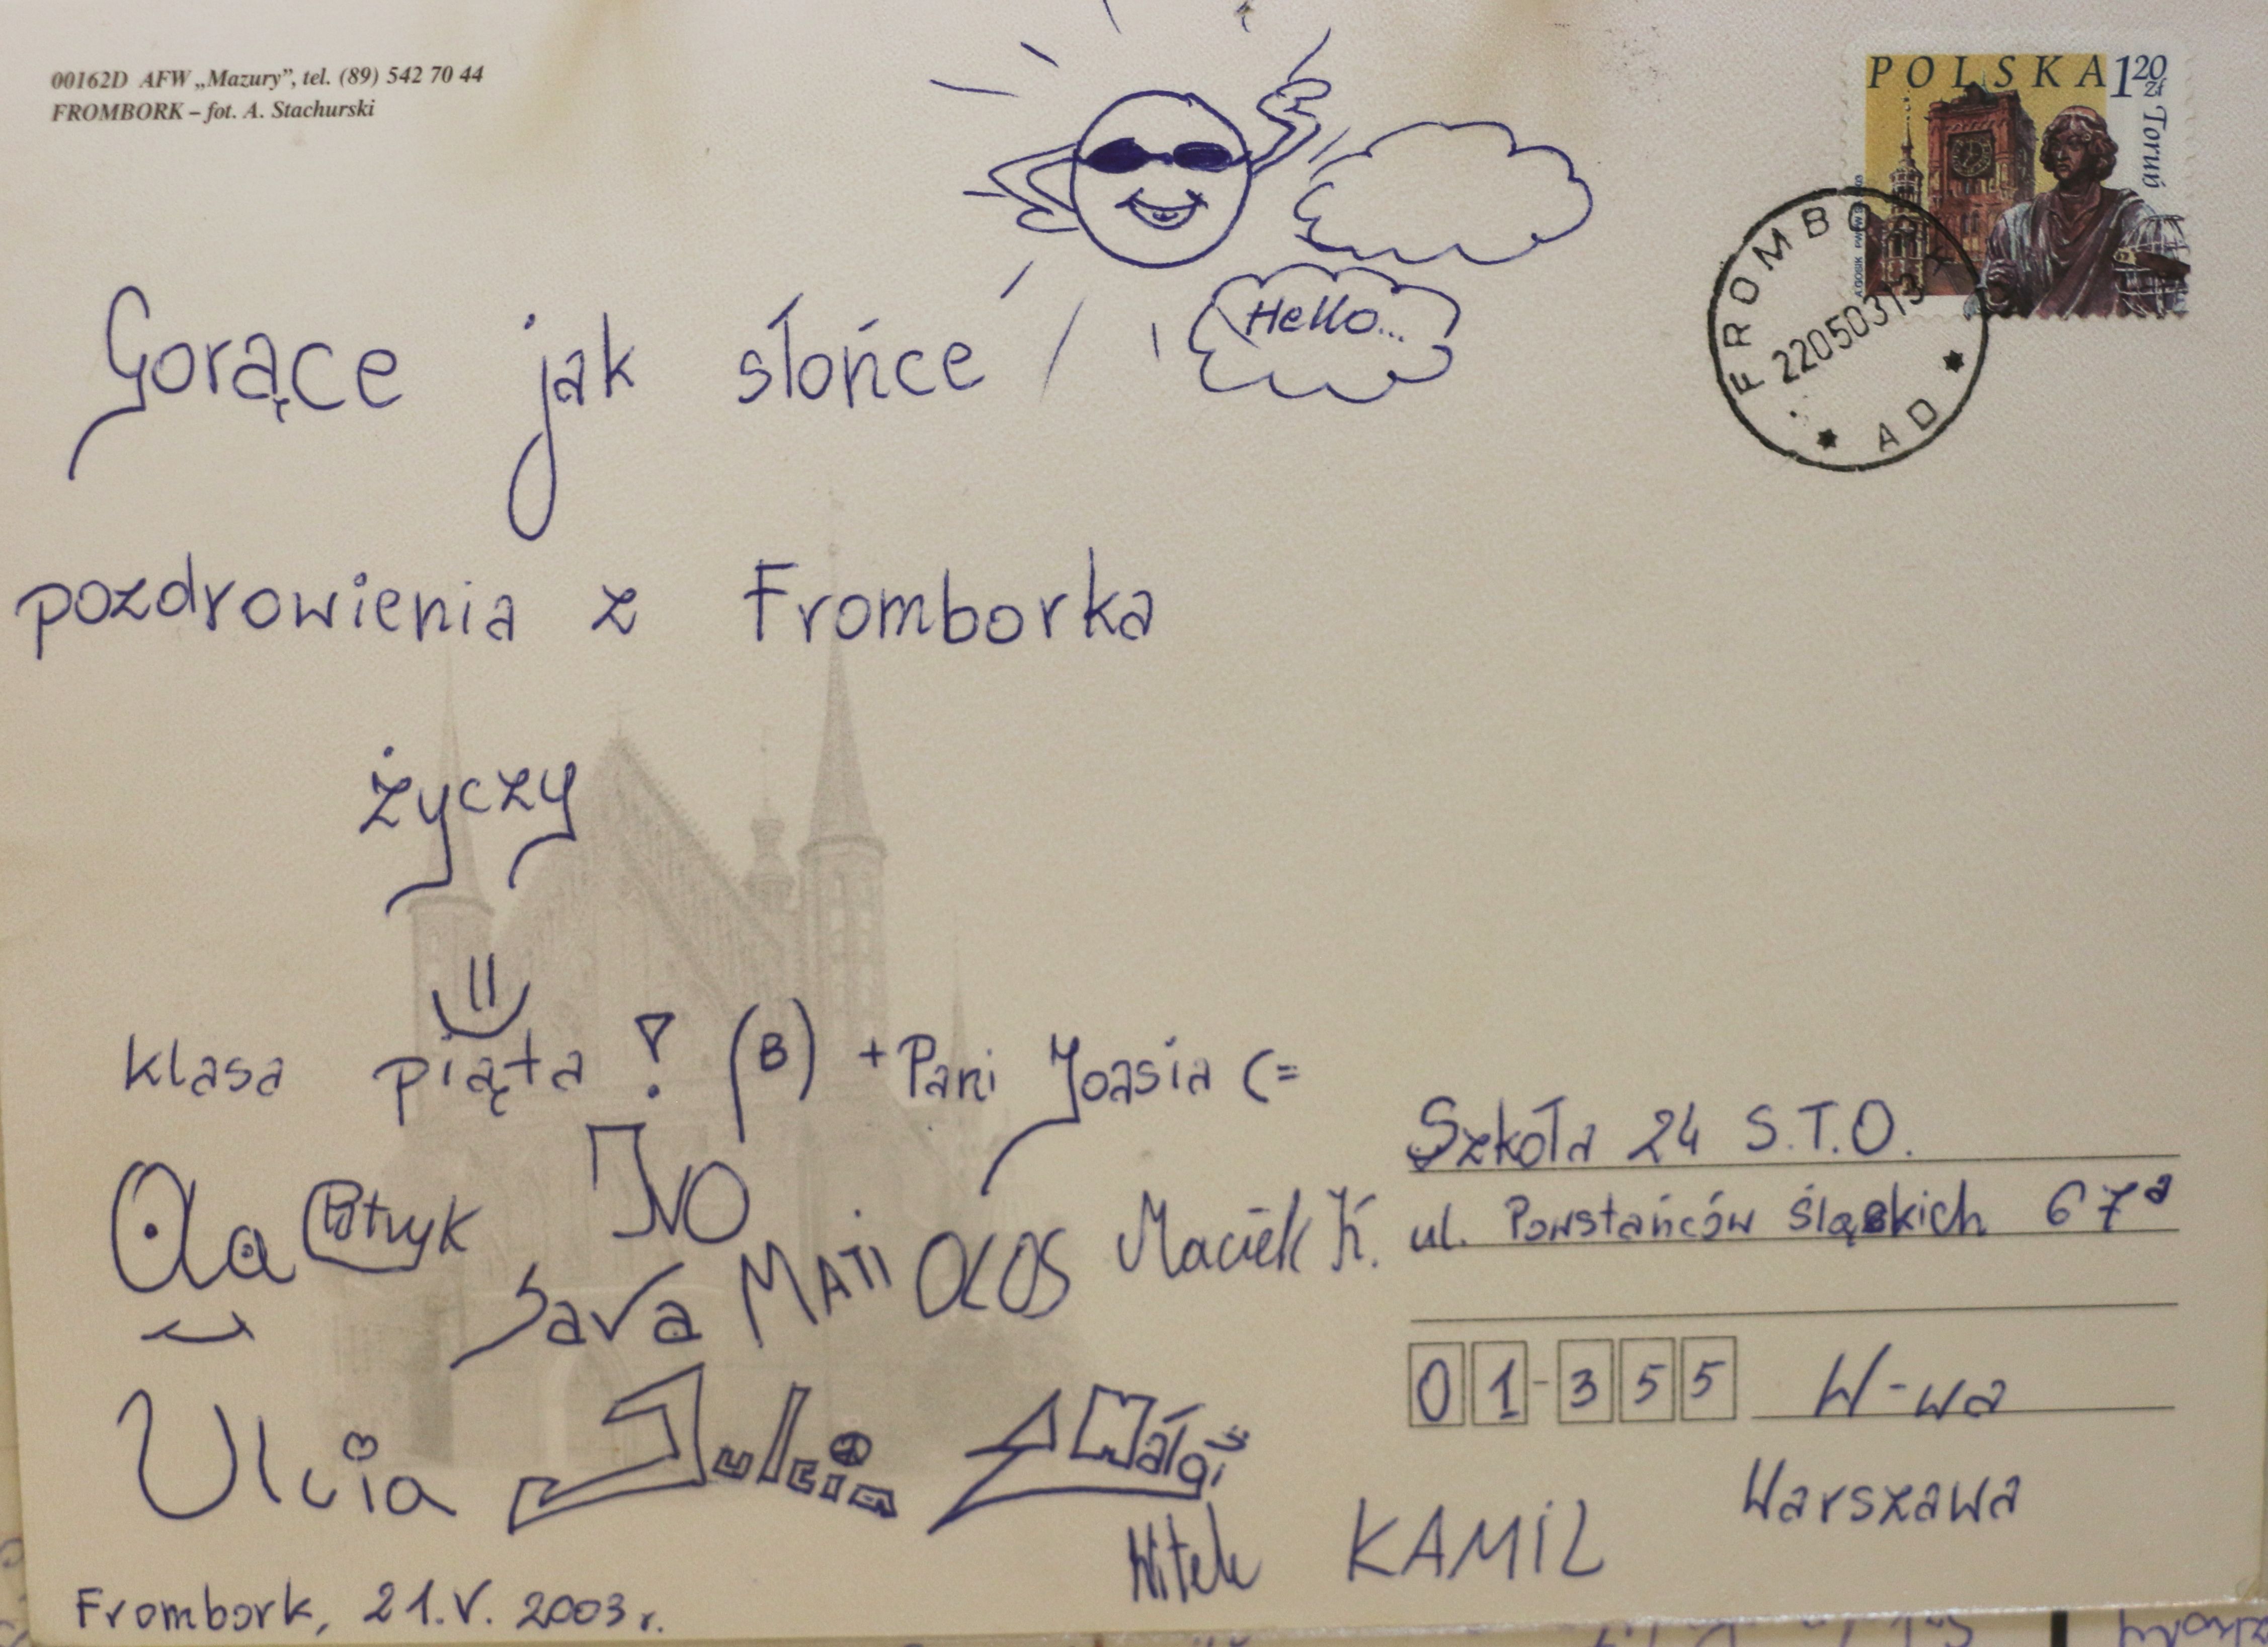 00162D AFW „Mazury”, tel. (89) 542 70 44
FROMBORK – fot. A. Stachurski
POLSKA 1 20 zł
Toruń
FROMBO
22050313
AD
Hello...
Gorące jak słońce
pozdrowienia z Fromborka
życzy
klasa piąta! (B) + Pani Joasia (=
Ola Patryk IVO
Sara MATI OLOS Maciek K.
Ulcia Julcia Małgi
Witek KAMIL
Frombork, 21.V.2003r.
Szkoła 24 S.T.O.
ul. Powstańców Śląskich 67a
01-355 W-wa
Warszawa